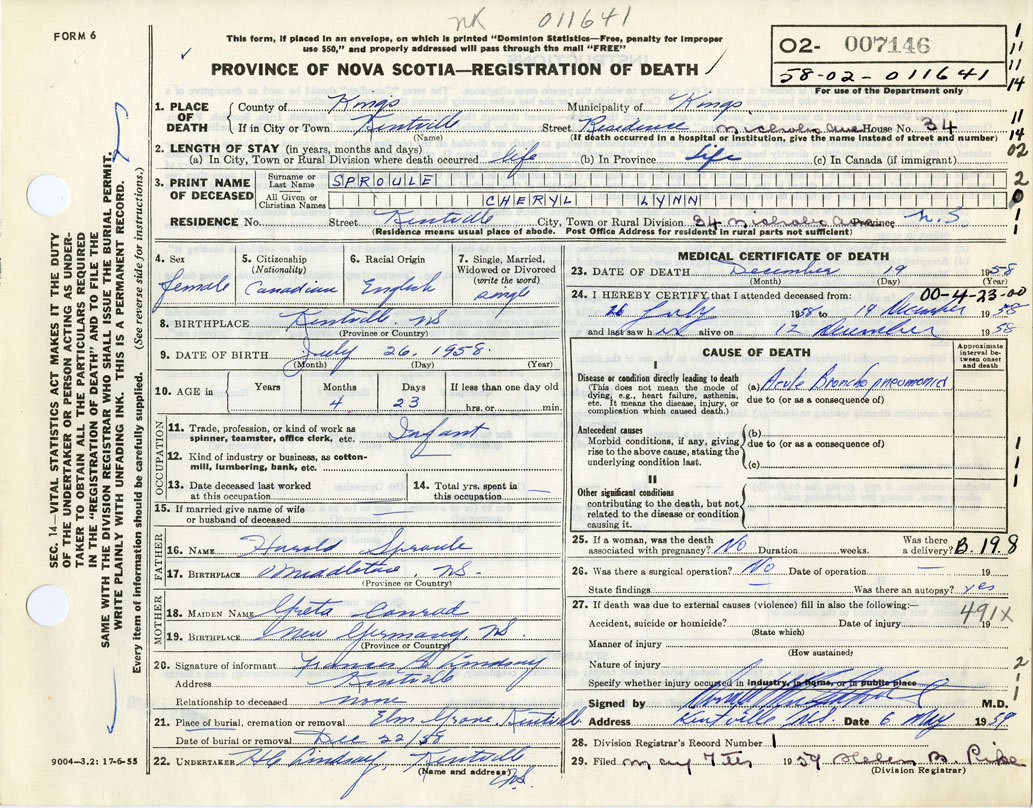 NK 011641
FORM 6
This form, if placed in an envelope, on which is printed "Dominion Statistics—Free, penalty for improper
use $50," and properly addressed will pass through the mail "FREE"
PROVINCE OF NOVA SCOTIA—REGISTRATION OF DEATH
02- 007146
58-02-011641
For use of the Department only
1
1
11
14
1. PLACE OF DEATH
County of Kings Municipality of Kings
If in City or Town Kentville Street Residence Nicholis Ave House No. 34
(Name) (If death occurred in a hospital or institution, give the name instead of street and number)
11
14
02
2. LENGTH OF STAY (in years, months and days)
(a) In City, Town or Rural Division where death occurred life (b) In Province Life (c) In Canada (if immigrant)
3. PRINT NAME OF DECEASED
Surname or Last Name SPROULE
All Given or Christian Names CHERYL LYNN
2
0
1
1
RESIDENCE No. Street Kentville City, Town or Rural Division 34 Nicholis Ave Province N.S
(Residence means usual place of abode. Post Office Address for residents in rural parts not sufficient)
4. Sex female
5. Citizenship (Nationality) Canadian
6. Racial Origin English
7. Single, Married, Widowed or Divorced (write the word) single
8. BIRTHPLACE Kentville, NS
(Province or Country)
9. DATE OF BIRTH July 26, 1958.
(Month) (Day) (Year)
10. AGE in Years Months Days If less than one day old
4 23 hrs. or min.
OCCUPATION
11. Trade, profession, or kind of work as spinner, teamster, office clerk, etc. Infant
12. Kind of industry or business, as cotton-mill, lumbering, bank, etc.
13. Date deceased last worked at this occupation
14. Total yrs. spent in this occupation —
15. If married give name of wife or husband of deceased —
FATHER
16. NAME Harold Sproule
17. BIRTHPLACE Middleton, NS.
(Province or Country)
MOTHER
18. MAIDEN NAME Greta Conrad
19. BIRTHPLACE New Germany, NS.
(Province or Country)
20. Signature of informant Francis G Lindsay
Address Kentville
Relationship to deceased none
21. Place of burial, cremation or removal Elm Grove, Kentville
Date of burial or removal Dec 22/58
22. UNDERTAKER Kentville
(Name and address) NS.
MEDICAL CERTIFICATE OF DEATH
23. DATE OF DEATH December 19 1958
(Month) (Day) (Year)
24. I HEREBY CERTIFY that I attended deceased from: 00-4-23-00
26 July 1958 to 19 December 1958
and last saw h er alive on 12 December 1958
CAUSE OF DEATH
Approximate interval between onset and death
I
Disease or condition directly leading to death
(This does not mean the mode of dying, e.g., heart failure, asthenia, etc. It means the disease, injury, or complication which caused death.)
(a) Acute Bronchopneumonia
due to (or as a consequence of)
Antecedent causes
Morbid conditions, if any, giving rise to the above cause, stating the underlying condition last.
(b)
due to (or as a consequence of)
(c)
1
1
1
II
Other significant conditions
contributing to the death, but not related to the disease or condition causing it.
25. If a woman, was the death associated with pregnancy? No Duration weeks. Was there a delivery? B.19.8
26. Was there a surgical operation? No Date of operation — 19
State findings — Was there an autopsy? yes
27. If death was due to external causes (violence) fill in also the following:—
491x
Accident, suicide or homicide? Date of injury 19
(State which)
Manner of injury
(How sustained)
Nature of injury
Specify whether injury occurred in industry, in home, or in public place
2
1
1
Signed by M.D.
Address Kentville NS. Date 6 May 1959.
28. Division Registrar's Record Number 1
29. Filed May 7th 1959 Helen B. Pike
(Division Registrar)
9004-3.2: 17-6-55
SEC. 14—VITAL STATISTICS ACT MAKES IT THE DUTY
OF THE UNDERTAKER OR PERSON ACTING AS UNDER-
TAKER TO OBTAIN ALL THE PARTICULARS REQUIRED
IN THE "REGISTRATION OF DEATH" AND TO FILE THE
SAME WITH THE DIVISION REGISTRAR WHO SHALL ISSUE THE BURIAL PERMIT.
WRITE PLAINLY WITH UNFADING INK. THIS IS A PERMANENT RECORD.
Every item of information should be carefully supplied. (See reverse side for instructions.)